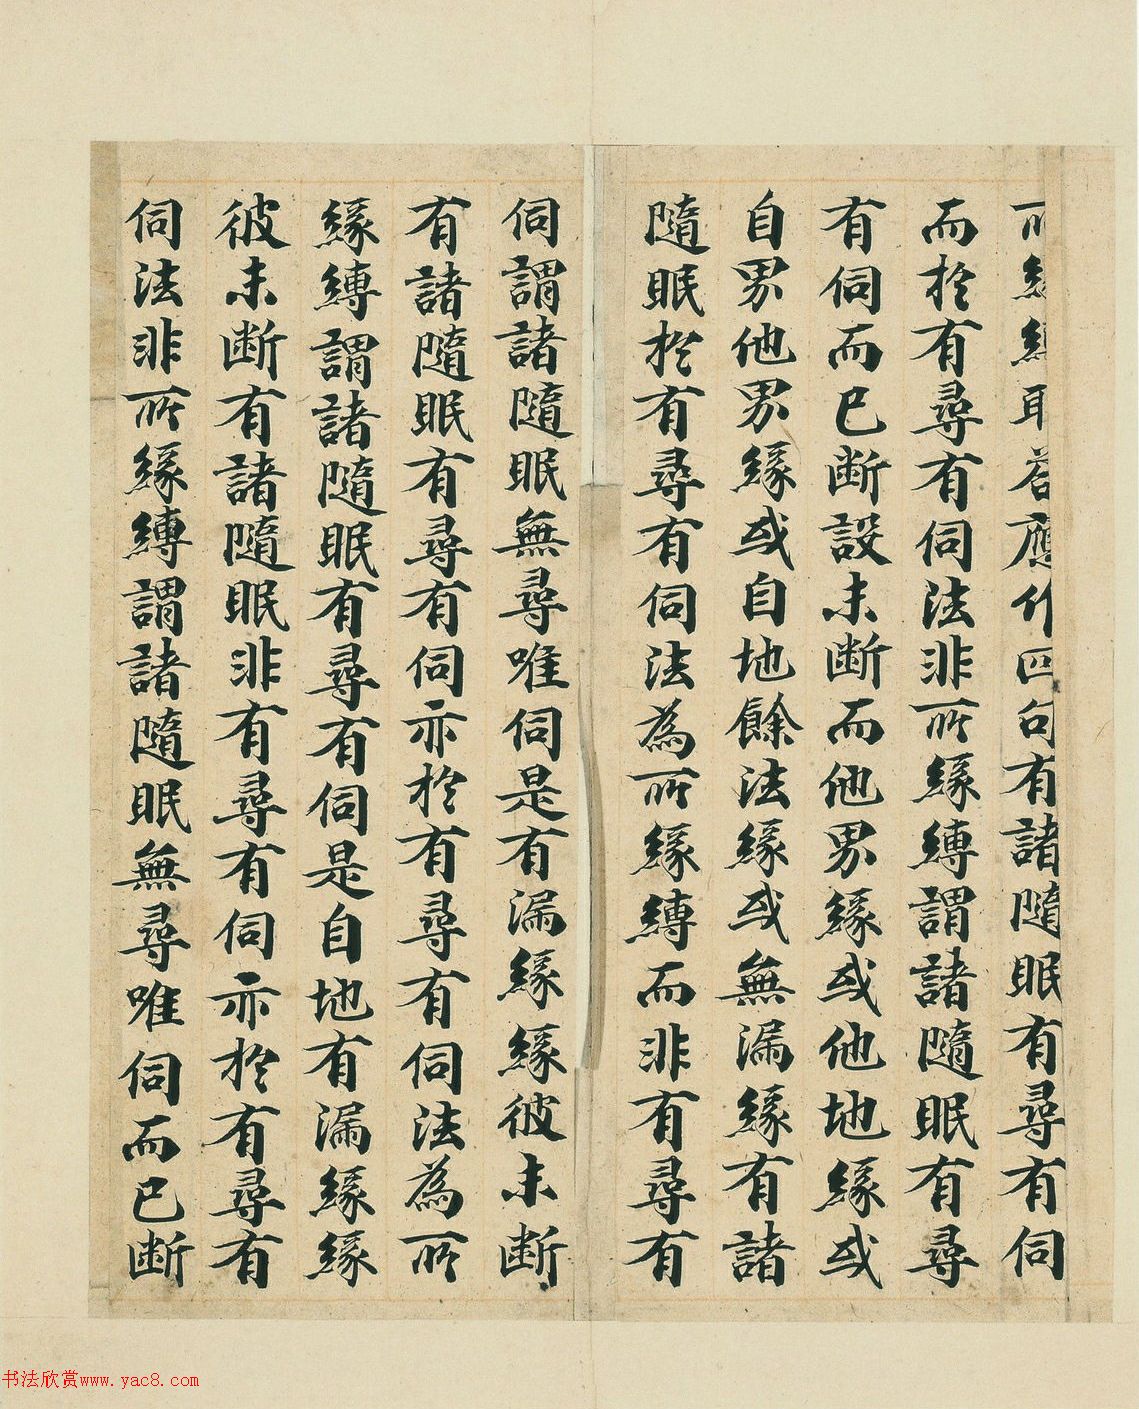 所緣縛耶荅應作四句有諸隨眠有尋有伺
而於有尋有伺法非所緣縛謂諸隨眠有尋
有伺而已斷設未斷而他界緣或他地緣或
自界他界緣或自地餘法緣或無漏緣有諸
隨眠於有尋有伺法為所緣縛而非有尋有
伺謂諸隨眠無尋唯伺是有漏緣緣彼未斷
有諸隨眠有尋有伺亦於有尋有伺法為所
緣縛謂諸隨眠有尋有伺是自地有漏緣緣
彼未斷有諸隨眠非有尋有伺亦於有尋有
伺法非所緣縛謂諸隨眠無尋唯伺而已斷
书法欣赏www.yac8.com